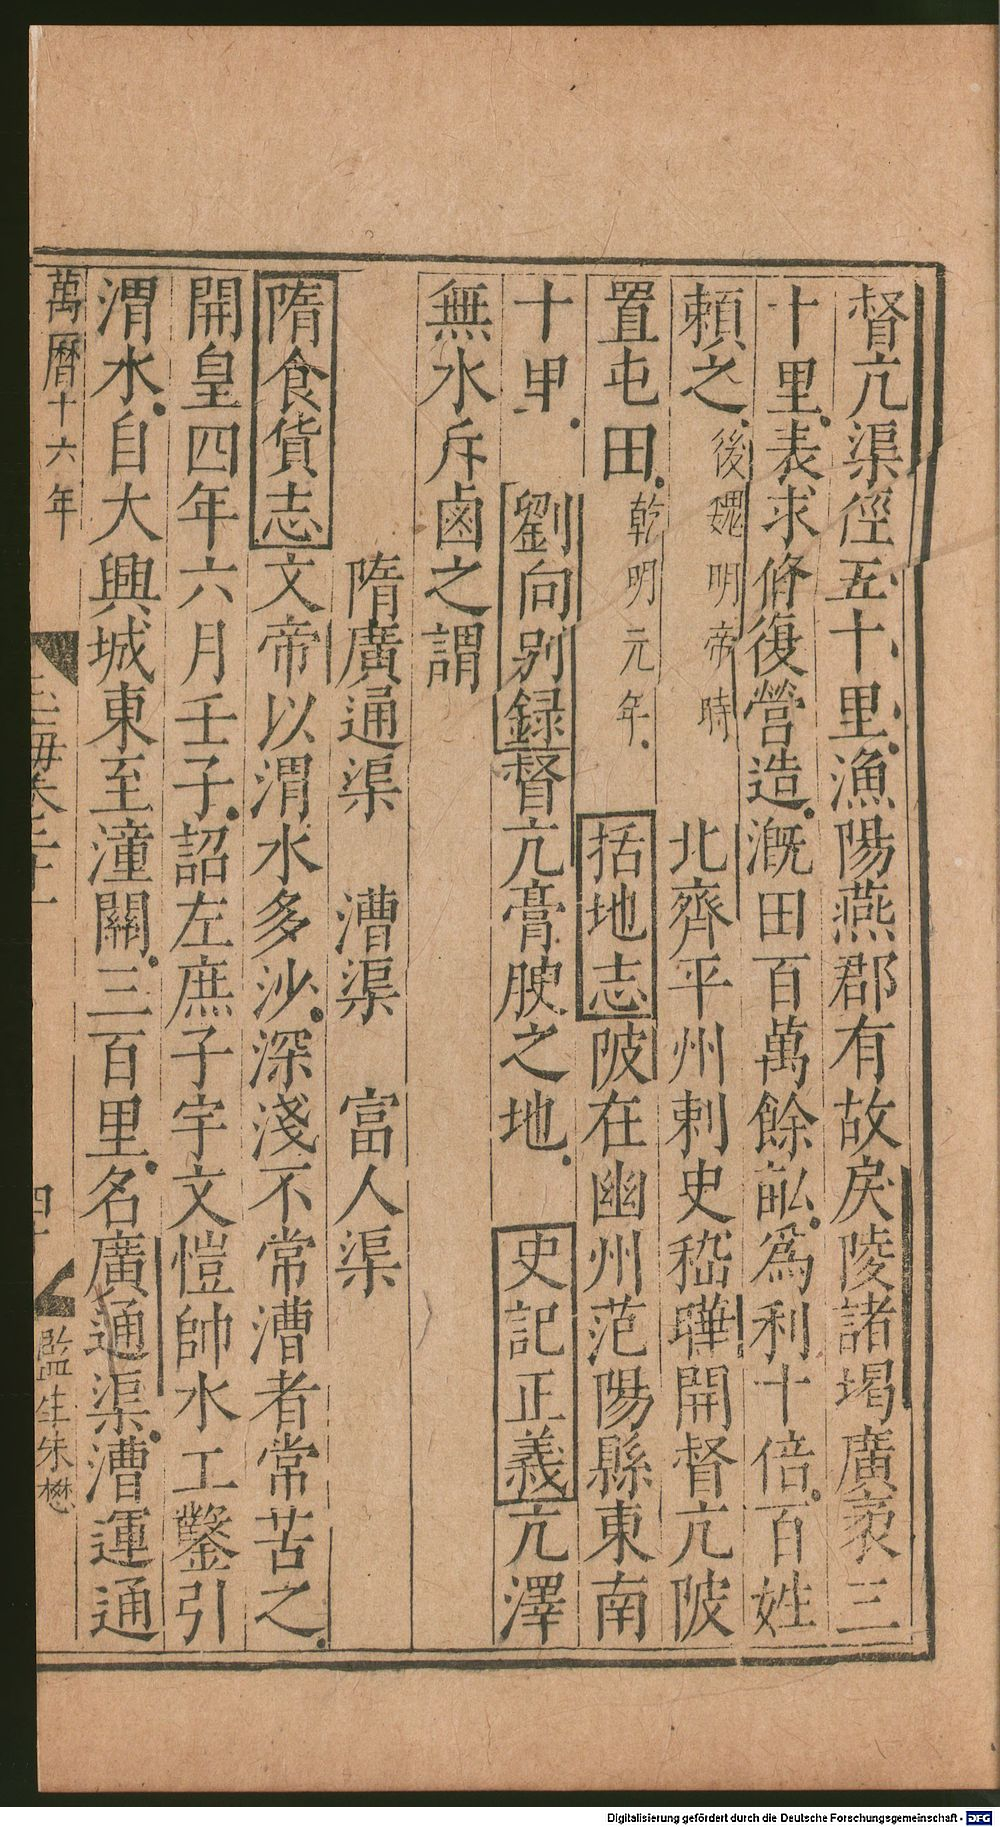 督亢渠徑五十里漁陽燕郡有故戾陵諸堨廣袤三
十里表求脩復營造溉田百萬餘畝爲利十倍百姓
賴之後魏明帝時 北齊平州刺史嵇曄開督亢陂
置屯田乾明元年 括地志陂在幽州范陽縣東南
十里 劉向别録督亢膏腴之地 史記正義亢澤
無水斥鹵之謂
隋廣通渠 漕渠 富人渠
隋食貨志文帝以渭水多沙深淺不常漕者常苦之
開皇四年六月壬子詔左庶子宇文愷帥水工鑿引
渭水自大興城東至潼關三百里名廣通渠漕運通
萬曆十六年 海卷 監生朱懋
Digitalisierung gefördert durch die Deutsche Forschungsgemeinschaft - DFG